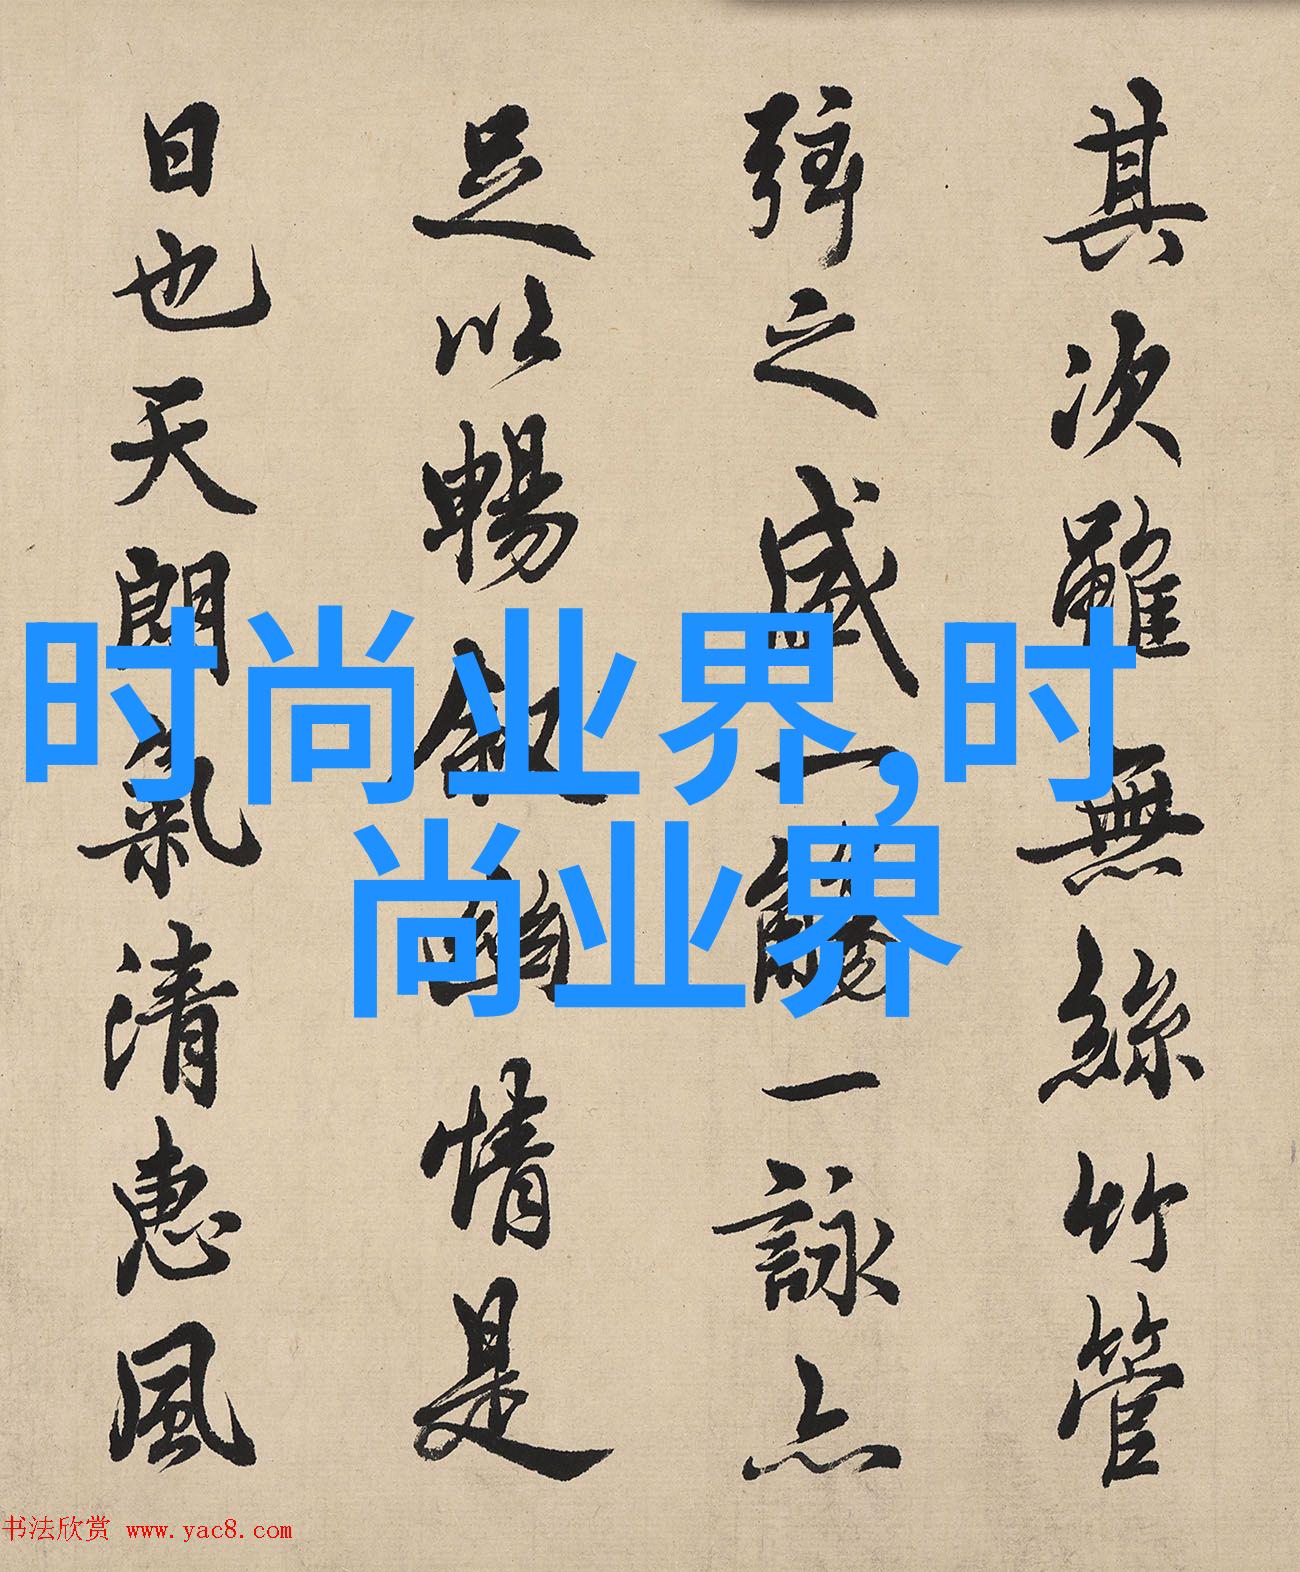 其次雖無絲竹管
弦之盛一觴一詠亦
足以暢敘幽情是
日也天朗氣清惠風
时尚业界,时
尚业界
书法欣赏 www.yac8.com